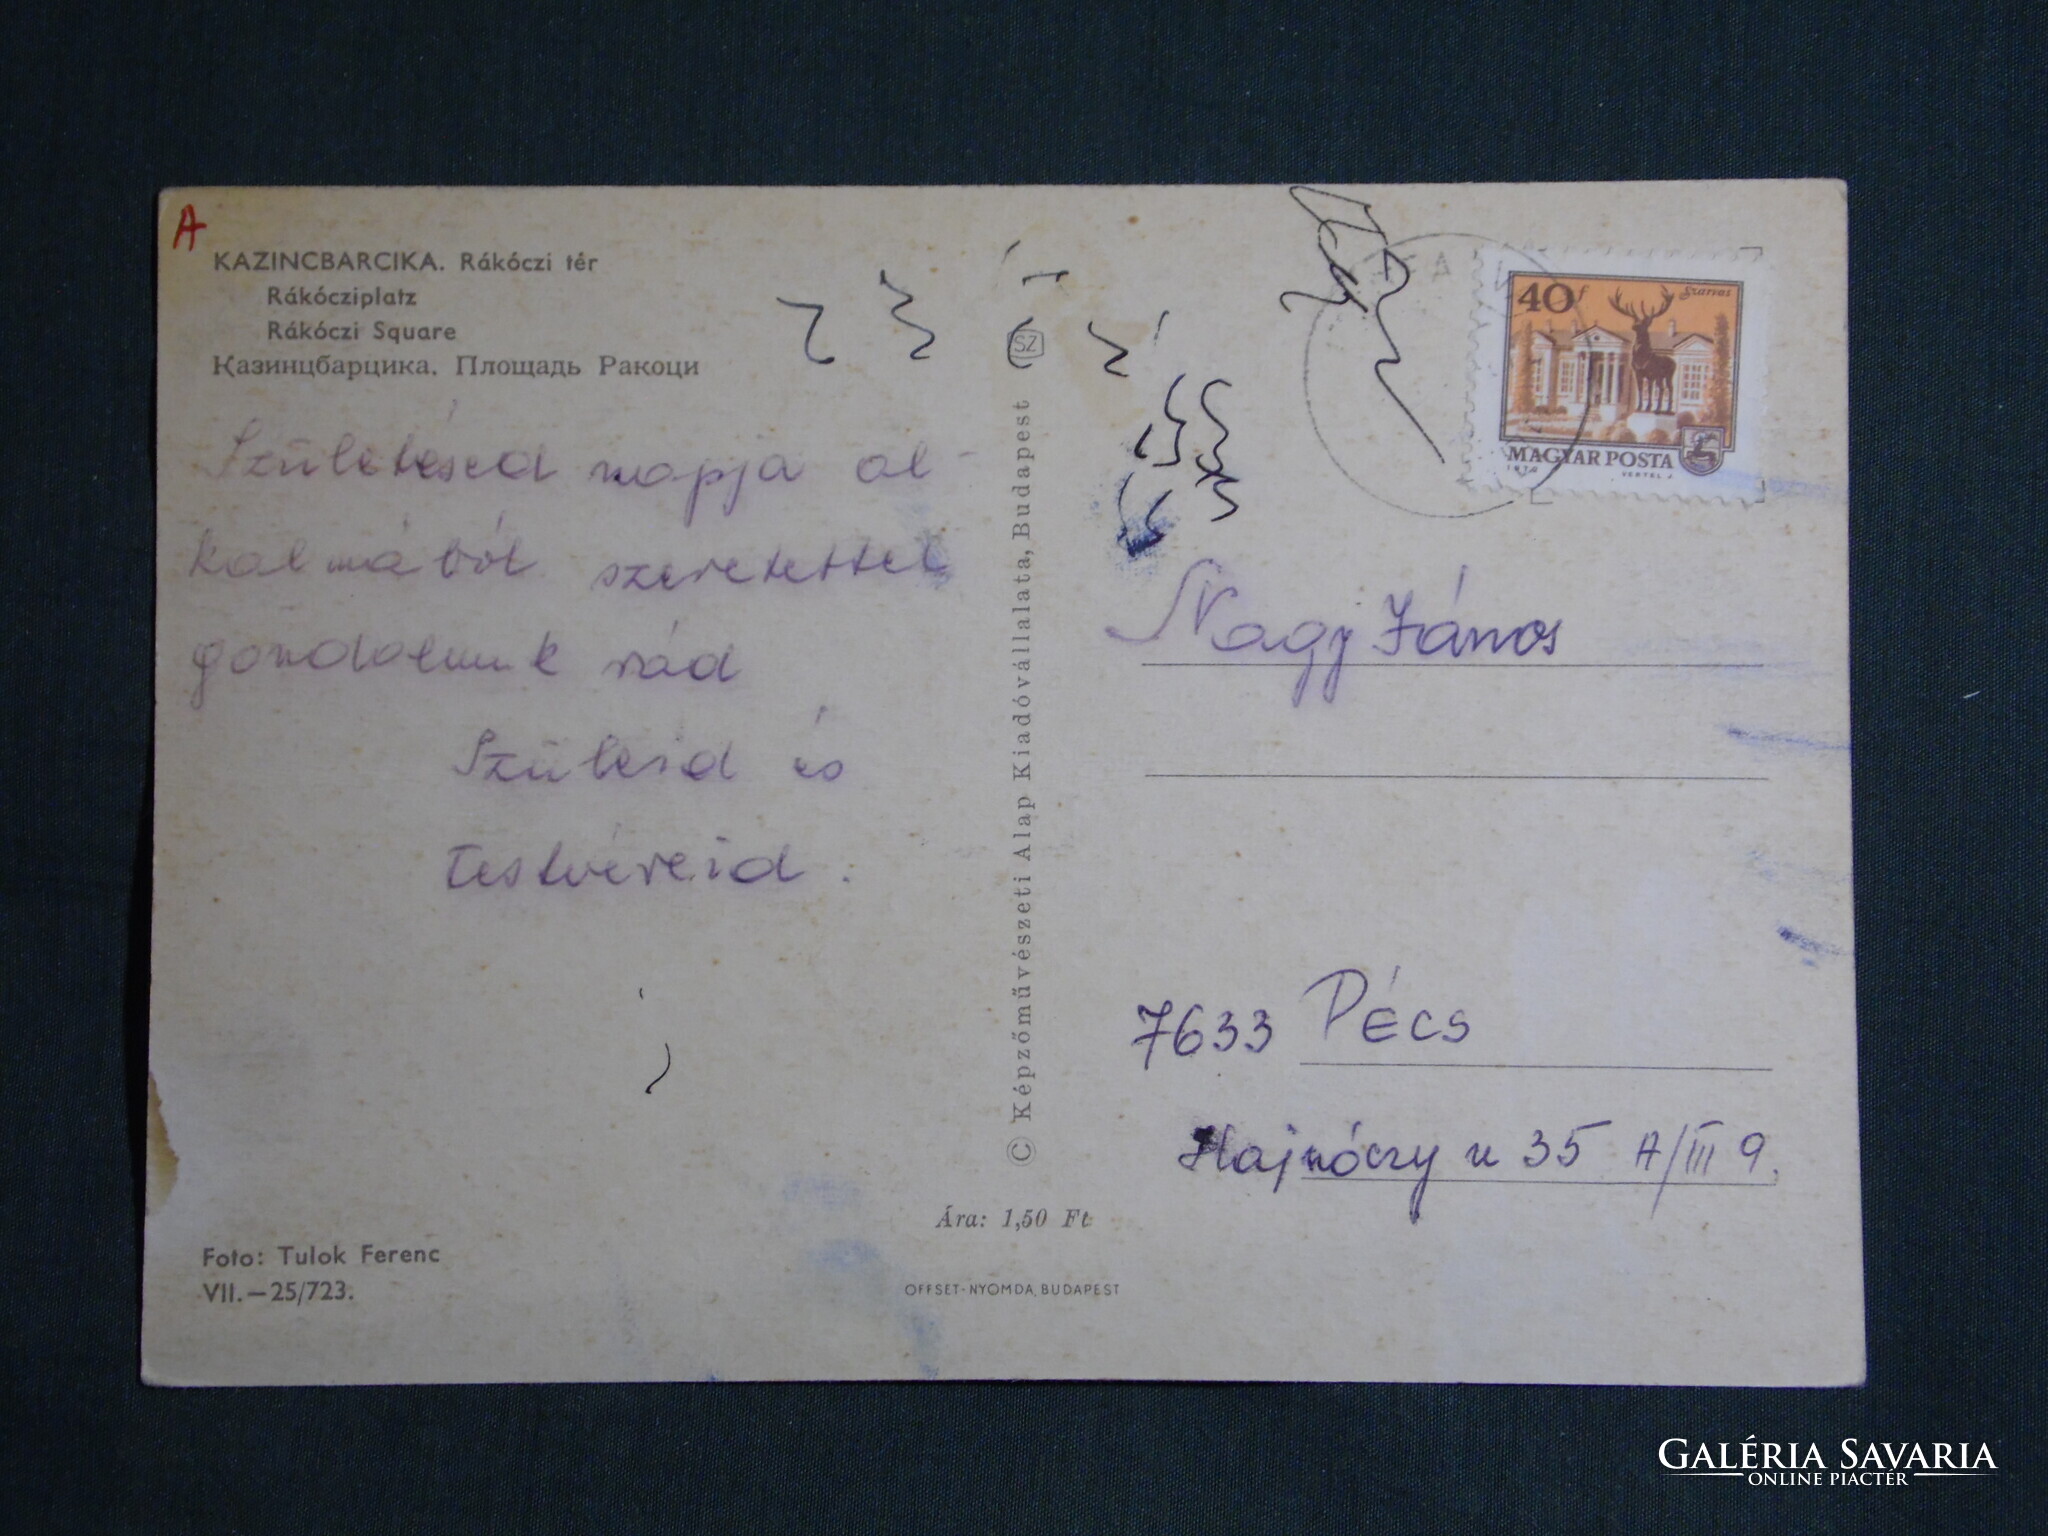 A
KAZINCBARCIKA. Rákóczi tér
Rákócziplatz
Rákóczi Square
Казинцбарцика. Площадь Ракоци
Születésed napja al-
kalmából szeretettel
gondolunk rád
Szüleid és
testvéreid.
Foto: Tulok Ferenc
VII.—25/723.
© Képzőművészeti Alap Kiadóvállalata, Budapest
SZ
Ára: 1,50 Ft
OFFSET-NYOMDA, BUDAPEST
40f
Szarvas
MAGYAR POSTA
VERTEL J
Nagy János
7633 Pécs
Hajnóczy u 35 A/III 9.
GALÉRIA SAVARIA
ONLINE PIACTÉR